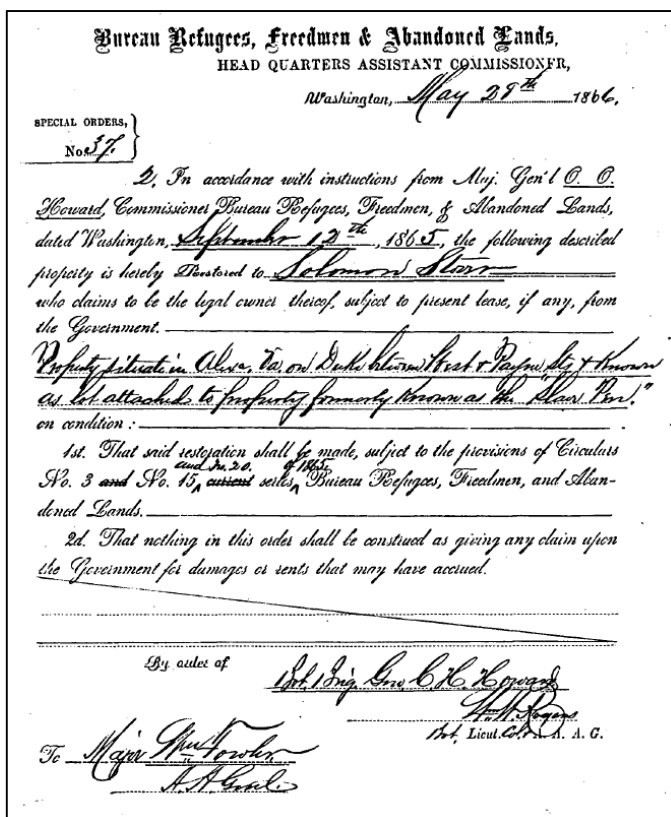 Bureau Refugees, Freedmen & Abandoned Lands,
HEAD QUARTERS ASSISTANT COMMISSIONER,
Washington, May 28th 1866.
SPECIAL ORDERS,
No. 37.
2. In accordance with instructions from Maj. Gen'l O. O.
Howard, Commissioner Bureau Refugees, Freedmen, & Abandoned Lands,
dated Washington, September 12th, 1865, the following described
property is hereby Restored to Solomon
who claims to be the legal owner thereof, subject to present lease, if any, from
the Government.
Property situate in Alex. Va on Duke between West & Payne Sts & Known
as lot attached to property formerly Known as the "Slave Pen."
on condition:
1st. That said restoration shall be made, subject to the provisions of Circulars
and No. 20. of 1865
No. 3 and No. 15, current series, Bureau Refugees, Freedmen, and Aban-
doned Lands.
2d. That nothing in this order shall be construed as giving any claim upon
the Government for damages or rents that may have accrued.
By order of
Bvt. Brig. Gen. C. H. Howard
Wm. W. Rogers
Bvt. Lieut. Col. A. A. G.
To Major Wm. Fowler
A. A. Genl.